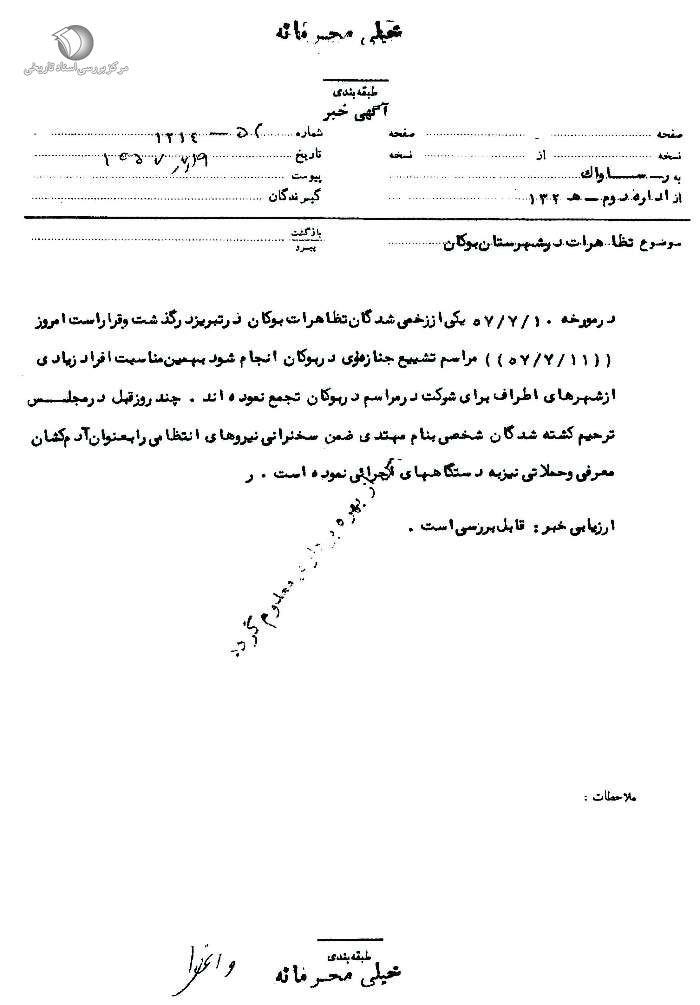 خیلی محرمانه
مرکز بررسی اسناد تاریخی
طبقه‌بندی
آگهی خبر
صفحه
صفحه
شماره ۱۲۱۴ – ۵۲
نسخه
از
نسخه
تاریخ
به ر – ساواک
پیوست
از اداره دوم – هـ ۱۳۲
گیرندگان
موضوع تظاهرات در شهرستان بوکان
بازگشت
پیرو
در مورخه ۵۷/۷/۱۰ یکی از زخمی شدگان تظاهرات بوکان در تبریز درگذشت و قرار است امروز
((۵۷/۷/۱۱)) مراسم تشییع جنازه وی در بوکان انجام شود بهمین مناسبت افراد زیادی
از شهرهای اطراف برای شرکت در مراسم در بوکان تجمع نموده اند . چند روز قبل در مجلس
ترحیم کشته شدگان شخصی بنام مهتدی ضمن سخنرانی نیروهای انتظامی را بعنوان آدم کشان
معرفی و حملاتی نیز به دستگاههای اجرائی نموده است . ر
ارزیابی خبر : قابل بررسی است .
پس از بهره برداری معدوم گردد
ملاحظات :
طبقه‌بندی
خیلی محرمانه